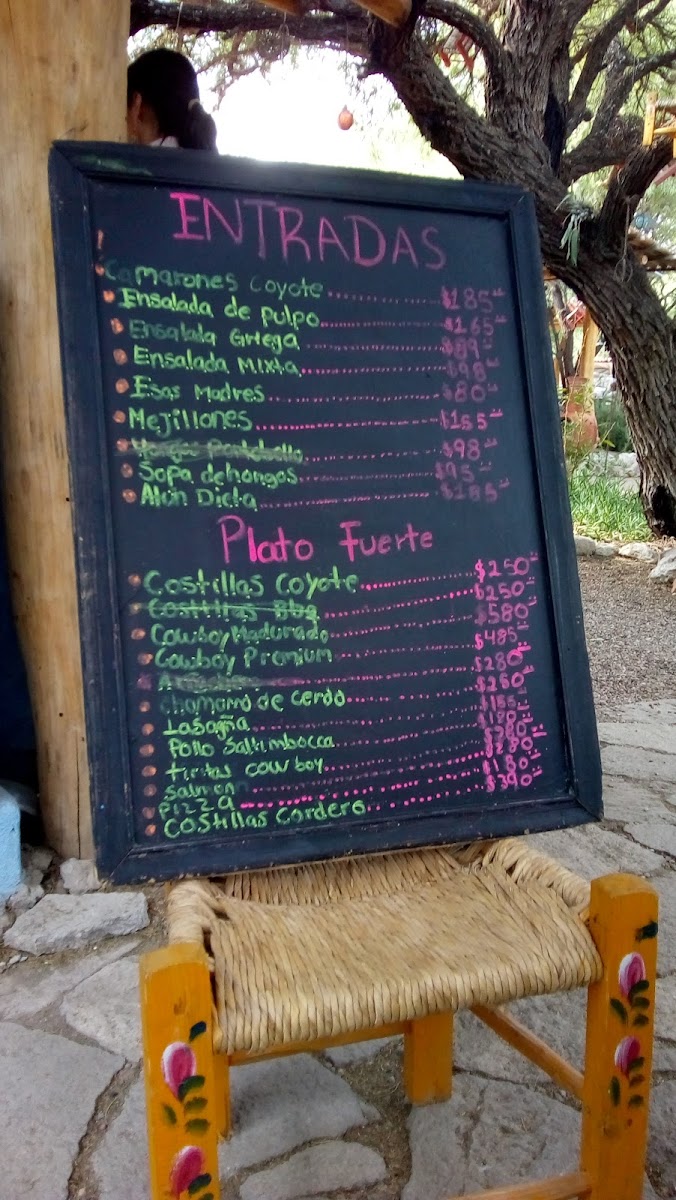 ENTRADAS
Camarones Coyote $185
Ensalada de pulpo $165
Ensalala Griega $89
Ensalada Mixta $98
Esas Madres $80
Mejillones $155
Hongos Portobello $98
Sopa de hongos $95
Atún Dicta $185
Plato Fuerte
Costillas Coyote $250
Costillas Bbq $250
Cowboy Madurado $580
Cowboy Premium $485
$280
chamorro de cerdo $260
Lasagña
Pollo Saltimbocca $180
tiritas cowboy $280
Salmon $280
PIZZA $180
Costillas Cordero $390